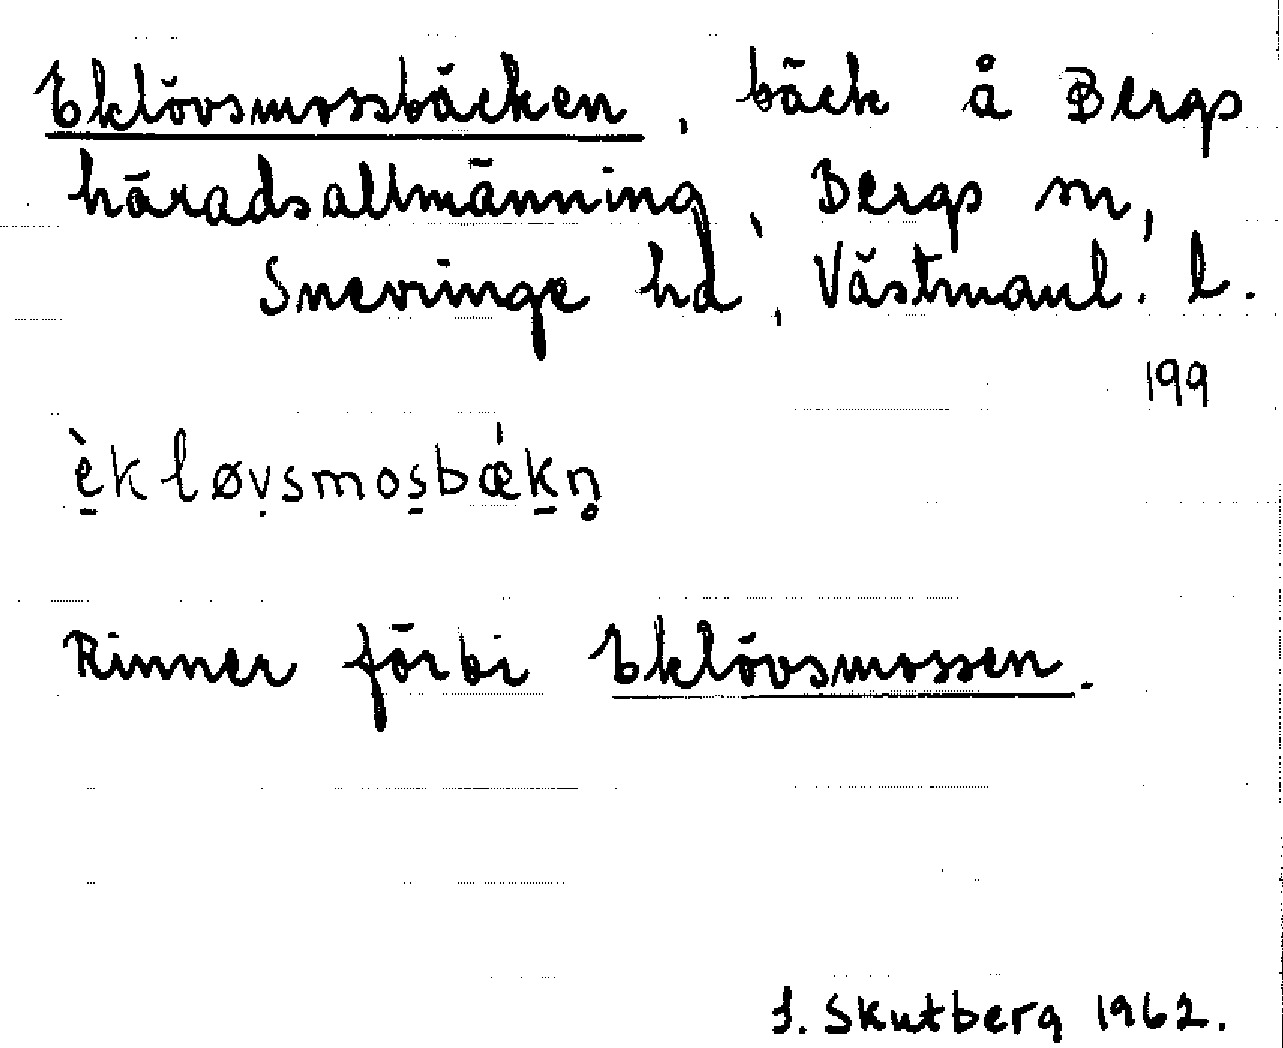 Eklövsmossbäcken, bäck å Bergs
häradsallmänning, Bergs sn,
Snevringe hd, Västmanl. l.
199
è̱kløṿsmos̱bǽḵn̥
Rinner förbi Eklövsmossen.
I. Skutberg 1962.